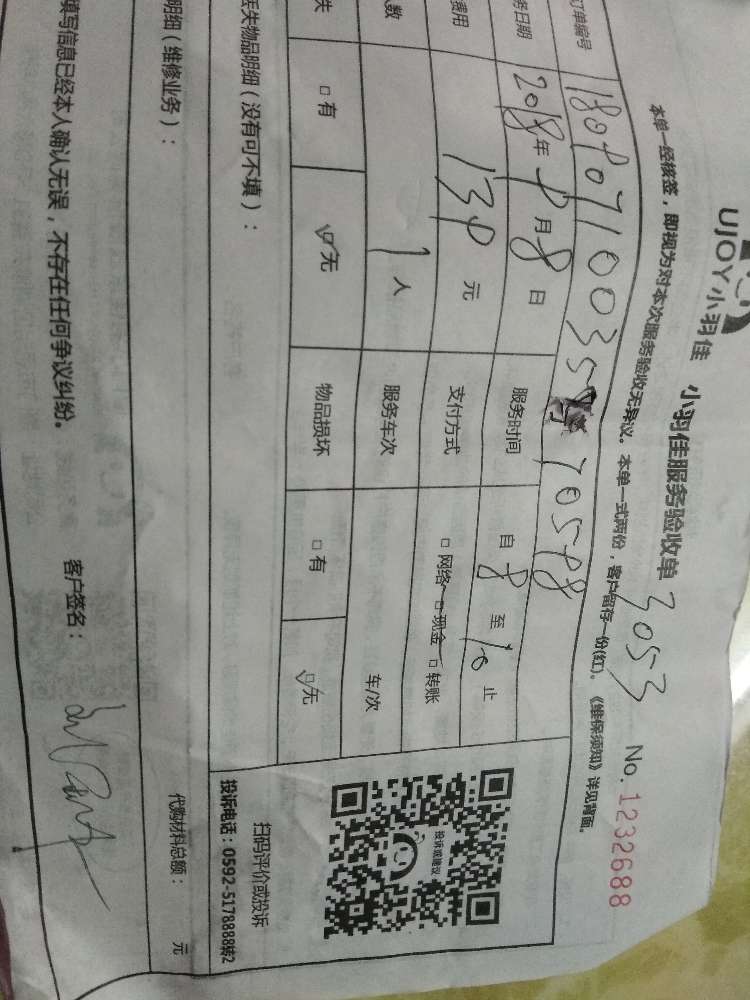 UJOY小羽佳 小羽佳服务验收单 3053 No. 1232688
本单一经核签，即视为对本次服务验收无异议。本单一式两份，客户留存一份(红)。《维保须知》详见背面。
订单编号
务日期 2018年 月8日 服务时间 自8至10止
费用 元 支付方式 □网络 □现金 □转账
数 1人 服务车次 车/次
失 □有 □无 物品损坏 □有 □无
丢失物品明细（没有可不填）：
扫码评价或投诉
投诉或建议
投诉电话：0592-5178888转2
明细（维修业务）：
代购材料总额： 元
填写信息已经本人确认无误，不存在任何争议纠纷。 客户签名：